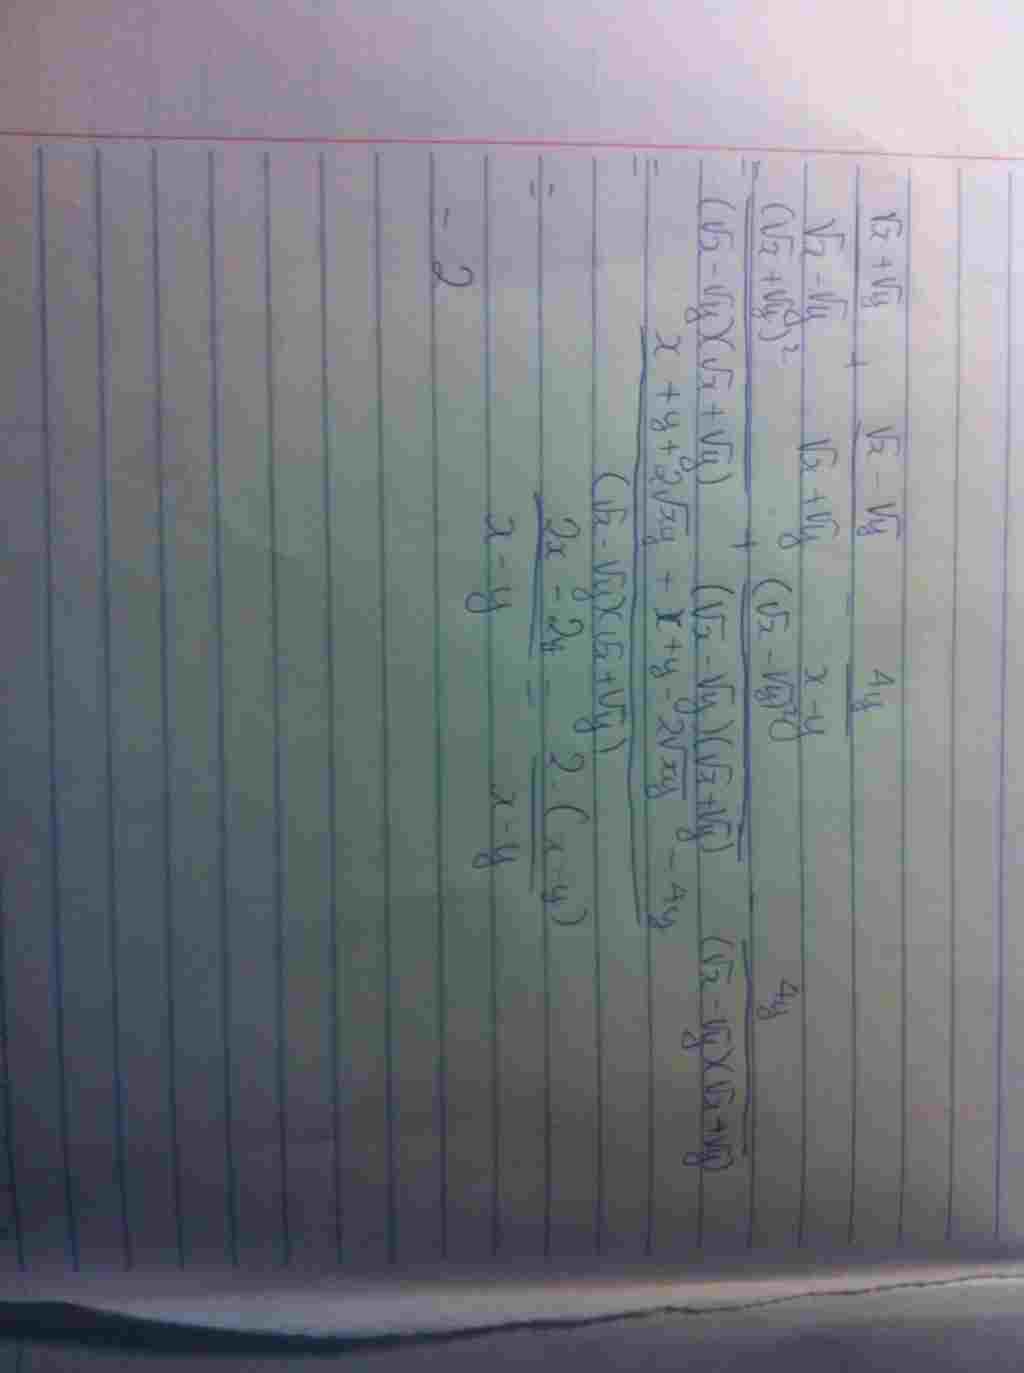 (√x + √y)/(√x - √y) + (√x - √y)/(√x + √y) - 4y/(x - y)
= (√x + √y)²/((√x - √y)(√x + √y)) + (√x - √y)²/((√x - √y)(√x + √y)) - 4y/((√x - √y)(√x + √y))
= (x + y + 2√xy + x + y - 2√xy - 4y)/((√x - √y)(√x + √y))
= (2x - 2y)/(x - y) = 2.(x - y)/(x - y)
= 2